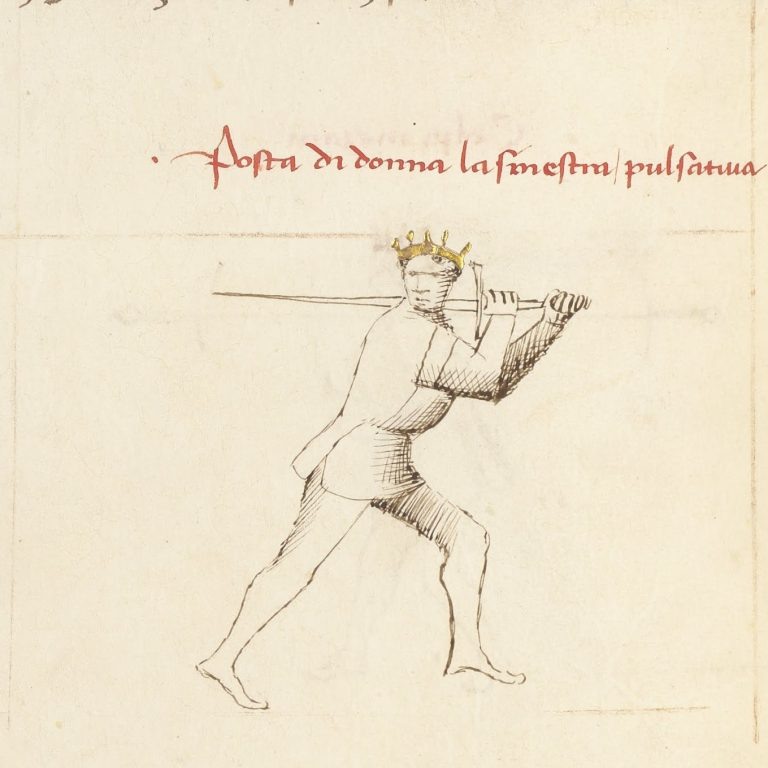 · Posta di donna la sinestra / pulsativa